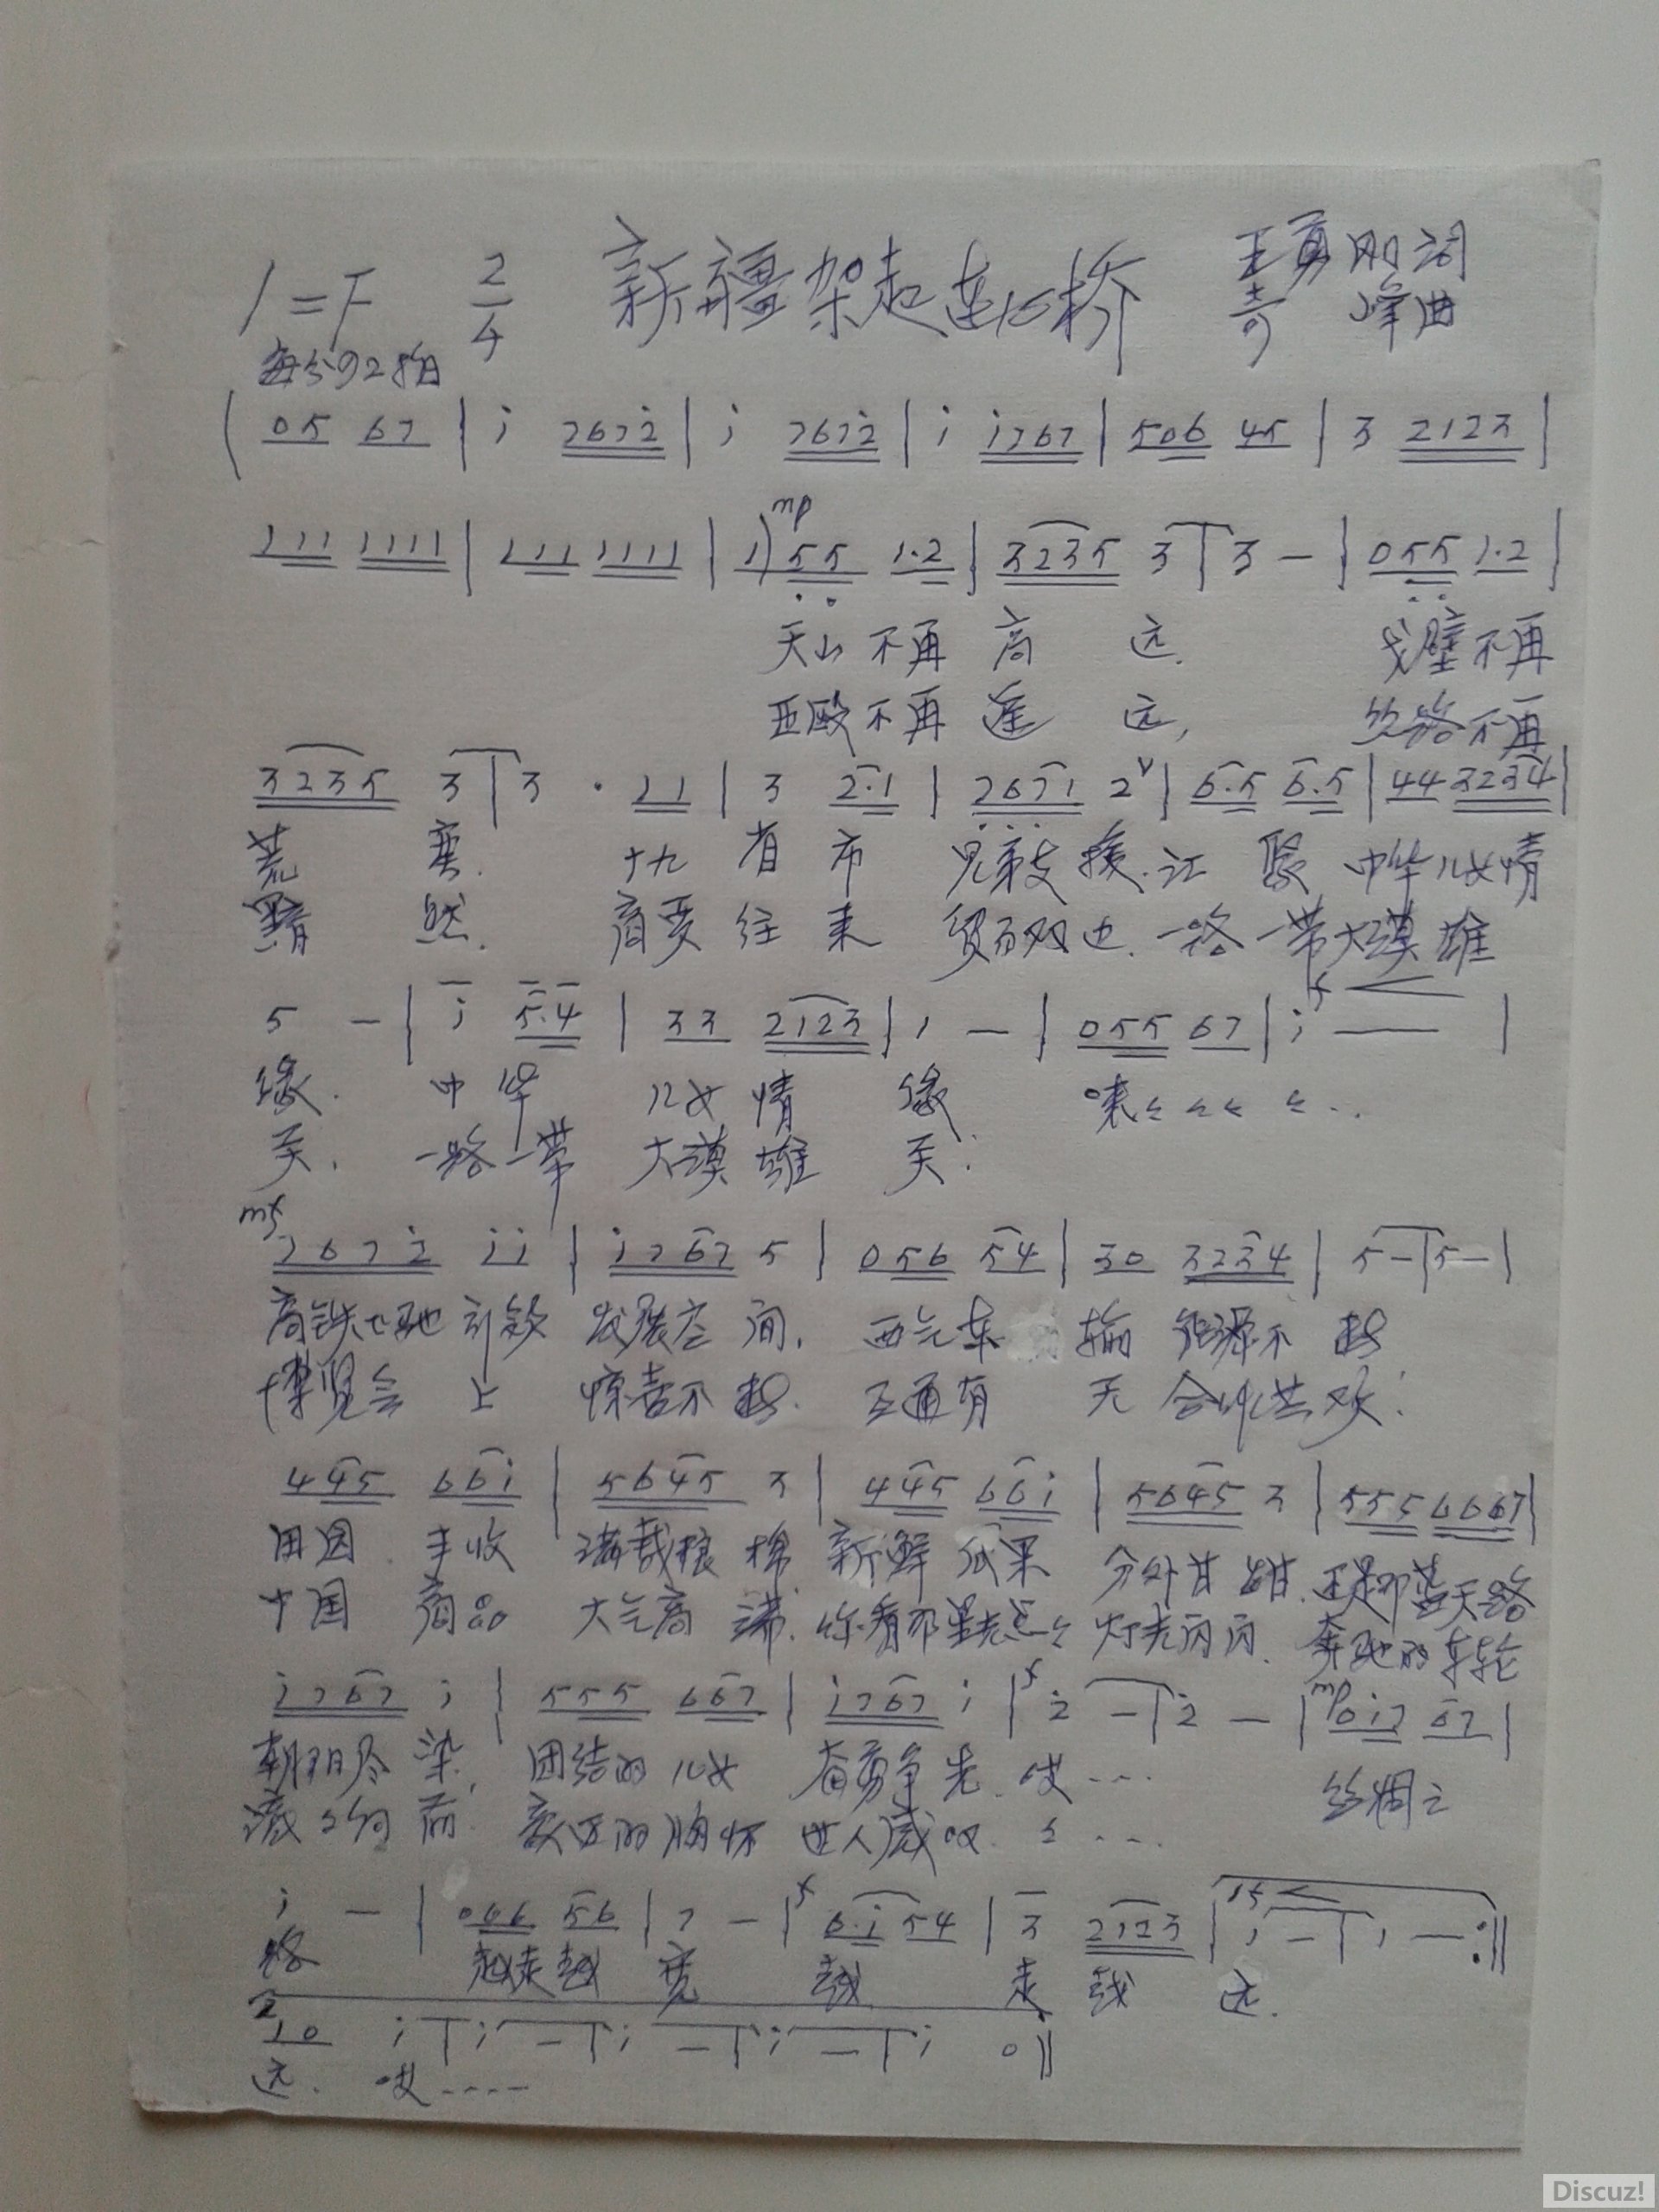 1=F 2/4 新疆架起连心桥 王勇刚词
每分92拍 奇峰曲
( 05 67 | i 7672 | i 7672 | i i767 | 506 45 | 3 2123 |
111 1111 | 111 1111 | 1) mp 55 1·2 | 3235 3 | 3 — | 055 1·2 |
天山不再高远. 戈壁不再
亚欧不再遥远, 丝路不再
3235 3 | 3 · 11 | 3 2·1 | 2671 2 | 6·5 6·5 | 44 3234 |
荒蛮. 十九省市 兄弟支援. 江 聚 中华儿女情
黯然. 商贾往来 贸易双边. 一路一带大漠雄
5 — | i 5·4 | 33 2123 | 1 — | 055 67 | i f — |
缘. 中华 儿女情缘 来
关. 一路一带 大漠雄关.
mf 7672 ii | i767 5 | 056 54 | 30 3234 | 5 — | 5 — |
高铁飞驰 发展空间. 西气东输 能源不
博览会上 惊喜不 互通有无 合作共欢:
4 45 6 6i | 5645 3 | 4 45 6 6i | 5645 3 | 555 6667 |
田园丰收 满载粮棉 新鲜瓜果 分外甘甜. 还是那蓝天路
中国商品 大气高端. 你看那星光点 灯光闪闪. 奔驰的车轮
i767 i | 555 667 | i767 i | f 2 — | 2 — | mp 0i7 67 |
朝阳尽染, 团结的儿女 奋勇争先. 哎…. 丝绸之
滚滚向前. 欧亚的胸怀 世人感叹. …
i — | 066 56 | 7 — | f 6·i 54 | 3 2123 | 1 — | 1 — :||
路 越走越宽 越走越远.
2 10 i | i — | i — | i — | i 0 ||
远. 哎….
Discuz!